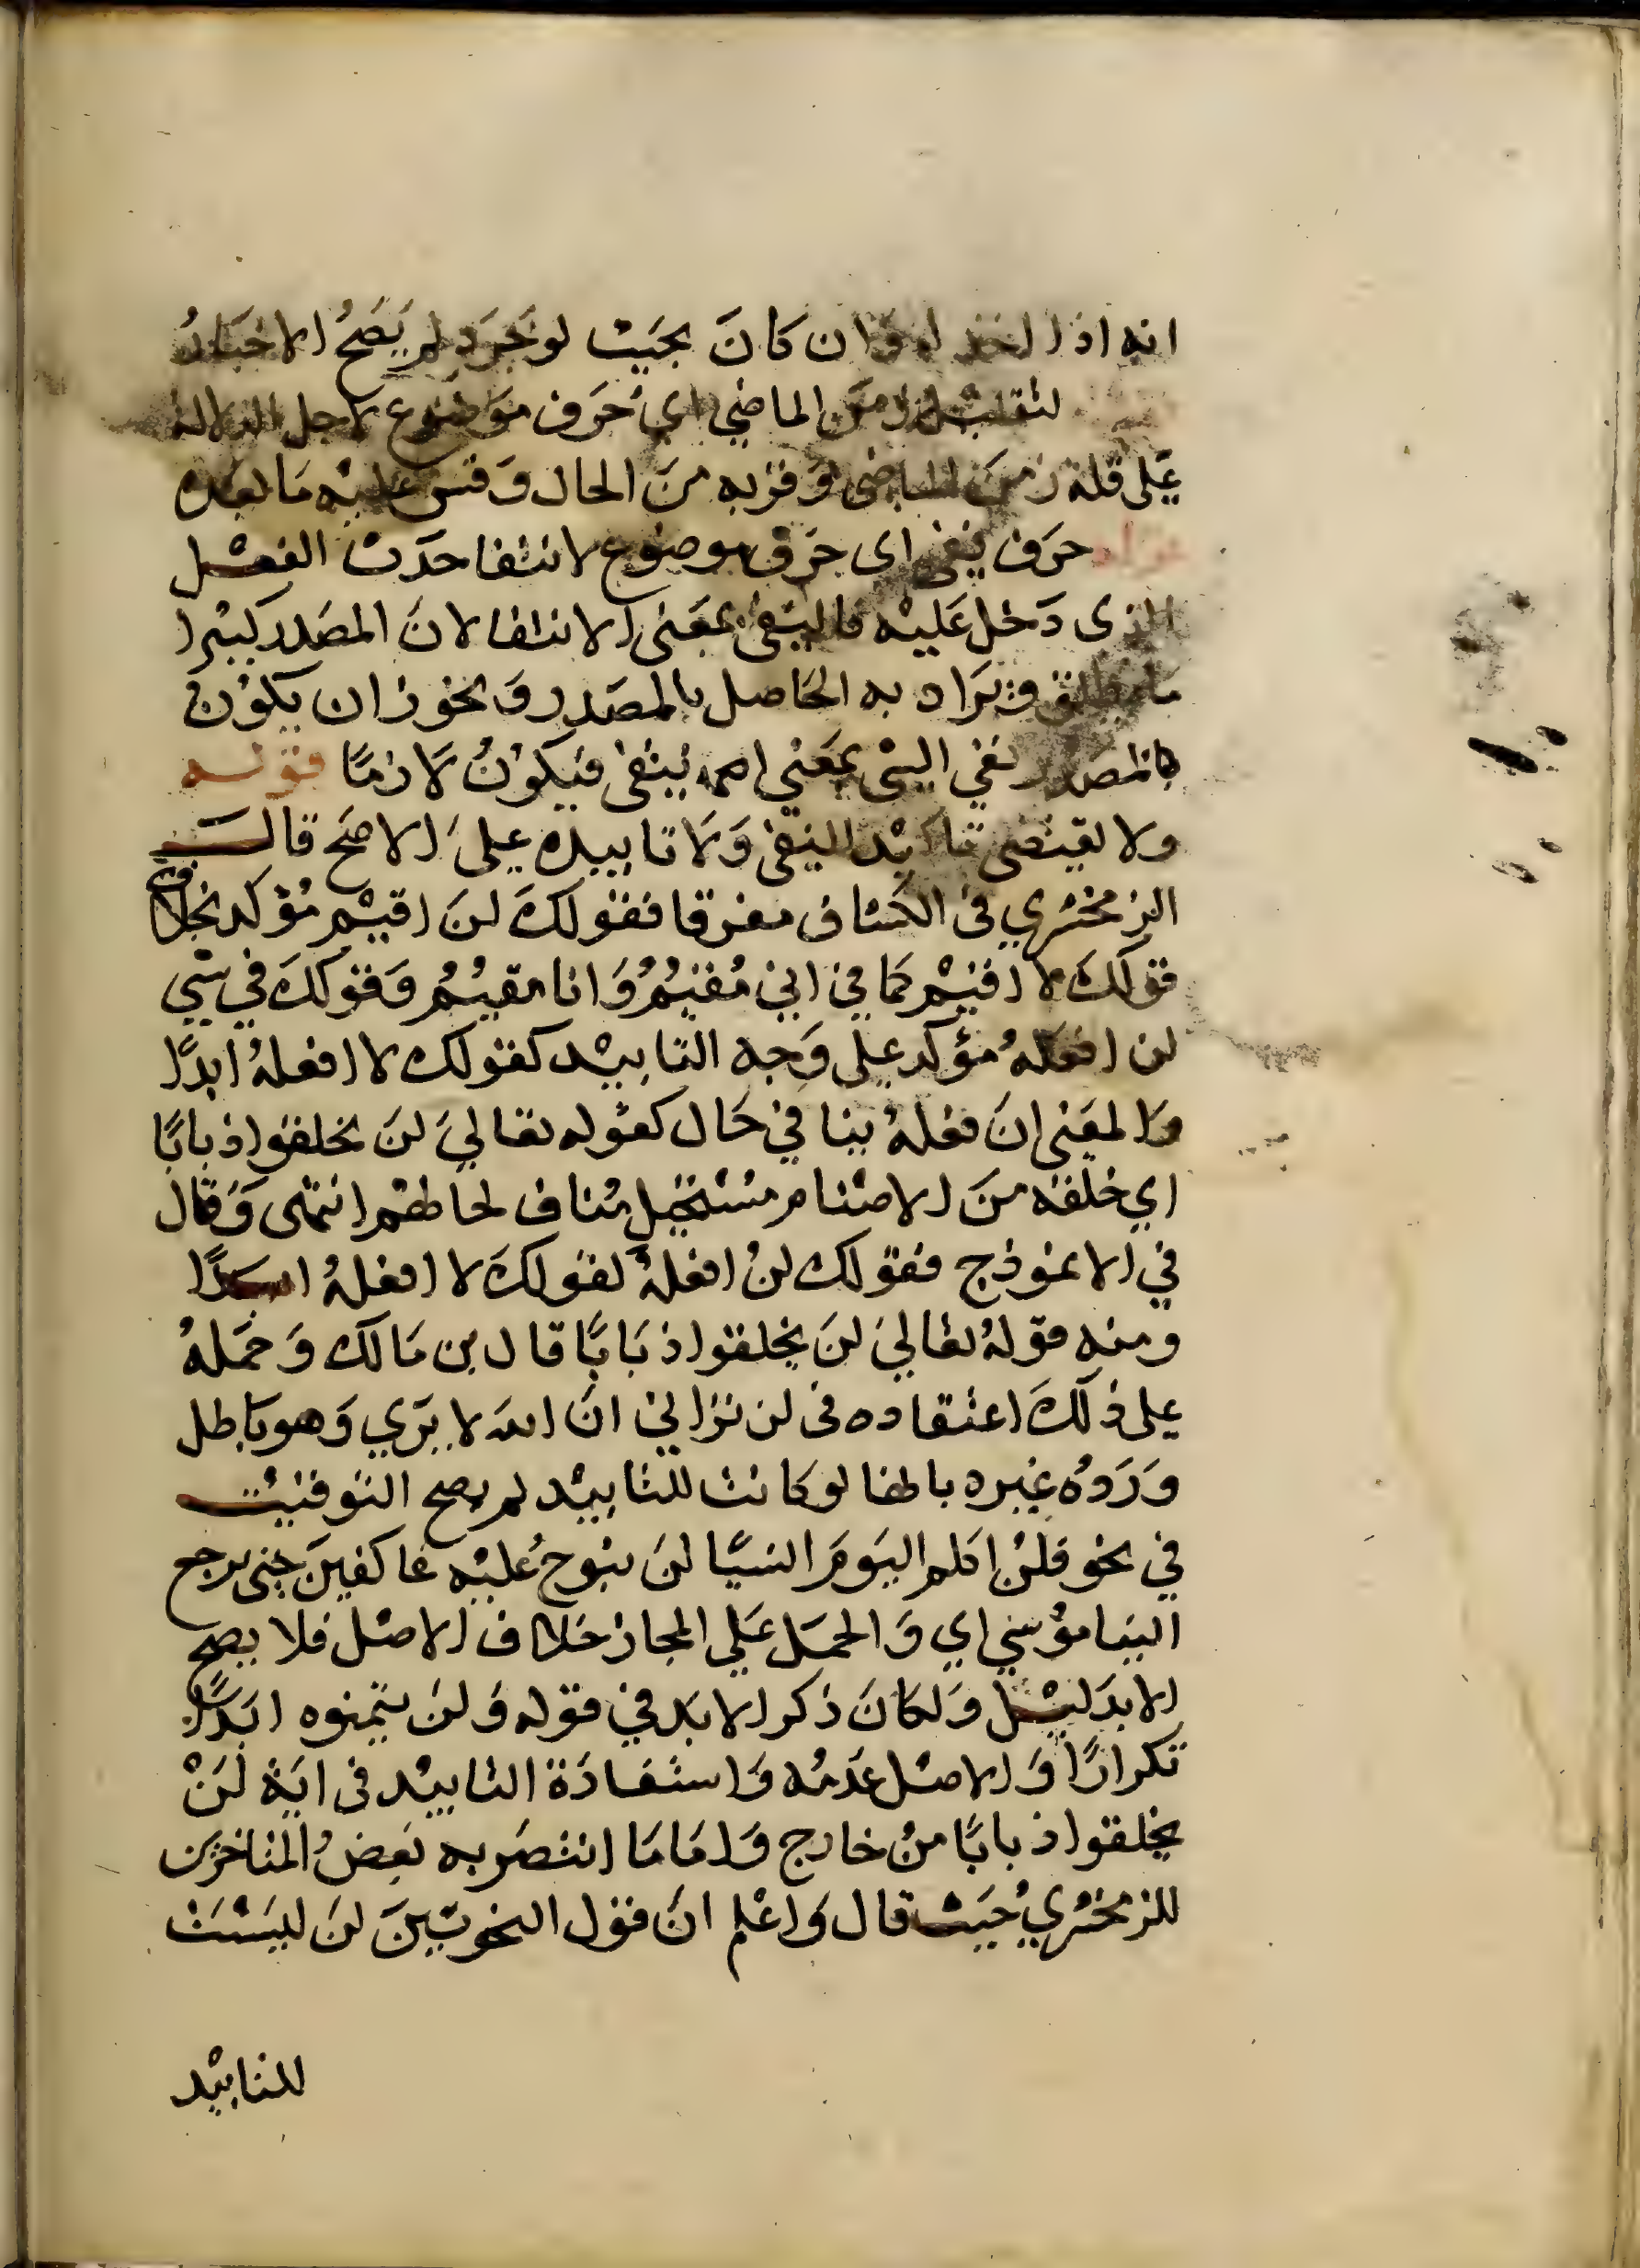 انه اذا اخذ او وان كانَ بحيَث لو تجرَد لم يَصَحُ الاخبَارُ
لتقليْل زمَن الماضي اي حَرَف موَضوع لاجل الدلالة
عَلى قلة زمنَ الماضى وَقربه منَ الحال وَقس عليْه مَا بعده
حرَف نفى اى حَرف موضوع لانتفا حدَث الفعْل
الذى دَخل عَليْه فالنفى بمعَنى الانتفا لانَ المصَدر كثيرا
ما يطلق وَيرَاد به الحَاصل بالمصَدر وَيجوز ان يكوْنَ
المصدر نفي الشى بمعَني انتفى فيَكوْنُ لَازمًا قوله
ولا تقتضى تاكيْد النفى وَلَا تابيده علىَ الاصَح قال
الزمخشري فى الكشاف مفرقا فقولكَ لنَ اقيْم مُؤكد بخلاف
قولكَ لا اقيْم كمَا في اني مُقيْمُ وَانا مقيْمُ وَقولكَ في شي
لن افعَلهُ مؤكد على وَجه التابيْد كقولك لا افعلهُ ابدًا
وَالمعَنى انَ فعْلهُ ينافي حَال كقوله تعَالىَ لنَ يخلقوا ذبابًا
اي خلقه منَ الاصْنام مسْتحيْل مُناف لحالهْم انتهى وَقال
في الانموذج فقولك لنْ افعلهُ كقولكَ لا افعلهُ ابدًا
ومنه قولهُ تعَاليَ لنَ يخلقوا ذبَابًا قال بن مَالك وَحمَلهُ
على ذلكَ اعتقاده فى لن تراني انَ الله لا يرَي وَهو باطل
وَرَدهُ غيره بانها لو كانت للتابيْد لم يصح التوقيْت
في نحو فلنْ اكلم اليَومَ انسيًا لنَ نبرح عُليْه عاكفينَ حتى يرجع
الينا مؤسي اي وَالحمَل عَلي المجاز خلاف الاصْل فلا يصح
الا بدَليْل وَلكانَ ذكر الابَد في قوله وَلنَ يتمنوه ابَدًا
تكرارًا وَالاصْل عَدمُه وَاستفادَة التابيْد فى ايَة لَنْ
يخلقوا ذبابًا منْ خارج وَامَا مَا انتصَر به بَعضُ المتاخرَين
للزمخشري حُيَث قال وَاعْلم انَ قوْل النحويَّينَ لنَ ليسَتْ
للتابيْد